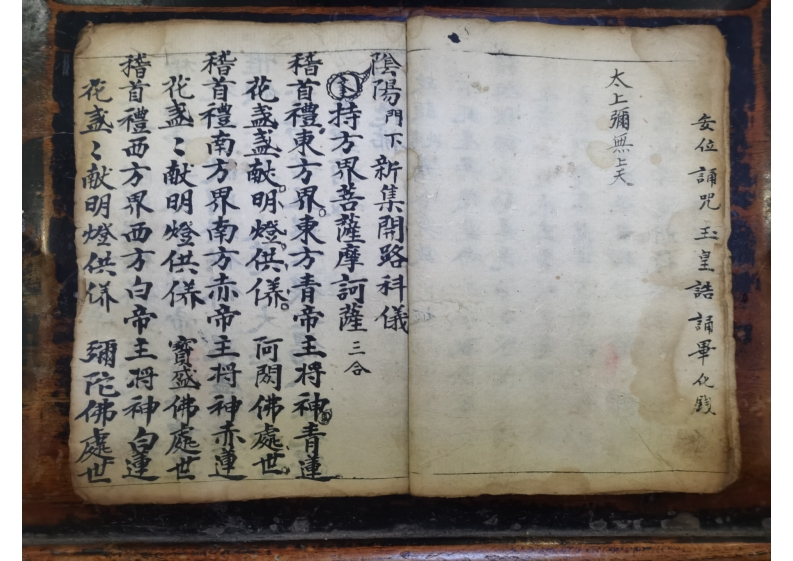 安位誦咒玉皇誥誦畢化錢
太上彌無上天
陰陽門下新集開路科儀
持方界菩薩摩訶薩三合
稽首禮東方界東方青帝王將神青蓮
花盞盞献明燈供侢阿閦佛處世
稽首禮南方界南方赤帝王將神赤蓮
花盞〻献明燈供侢寳盛佛處世
稽首禮西方界西方白帝王將神白蓮
花盞〻献明燈供侢彌陀佛處世